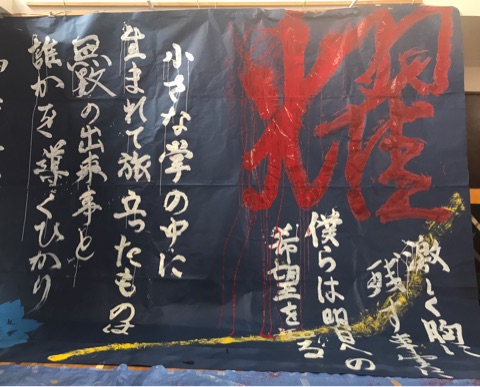 耀
激しく胸に
残す
僕らは明日への
希望を
小さな掌の中に
生まれて旅立ったもの
無数の出来事と
誰かを導くひかり